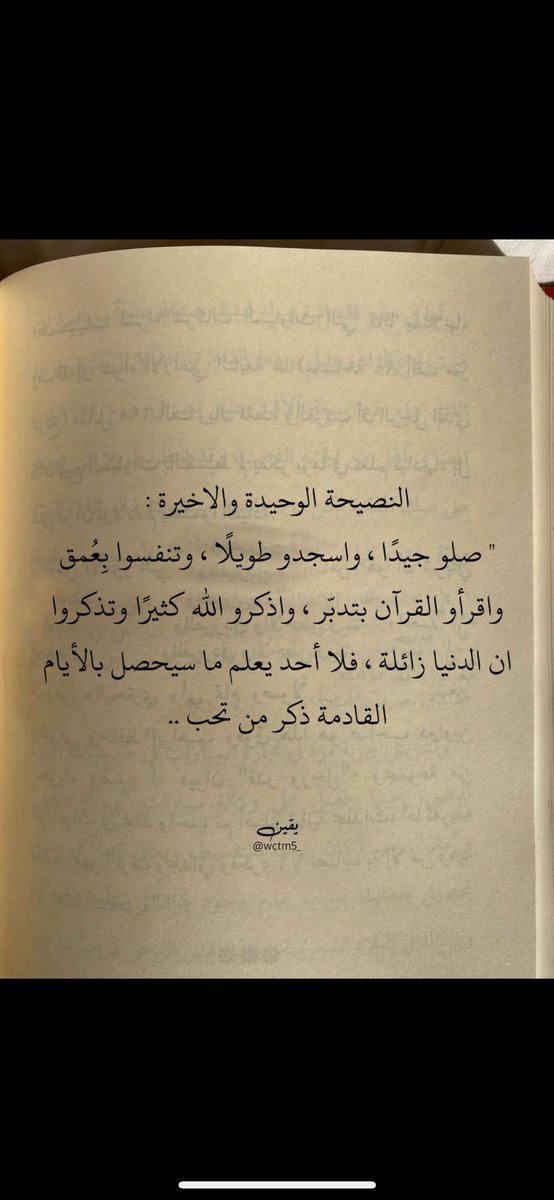 النصيحة الوحيدة والاخيرة :
" صلو جيدًا ، واسجدو طويلًا ، وتنفسوا بِعُمق
واقرأو القرآن بتدبّر ، واذكرو الله كثيرًا وتذكروا
ان الدنيا زائلة ، فلا أحد يعلم ما سيحصل بالأيام
القادمة ذكر من تحب ..
يقين
@wctm5_